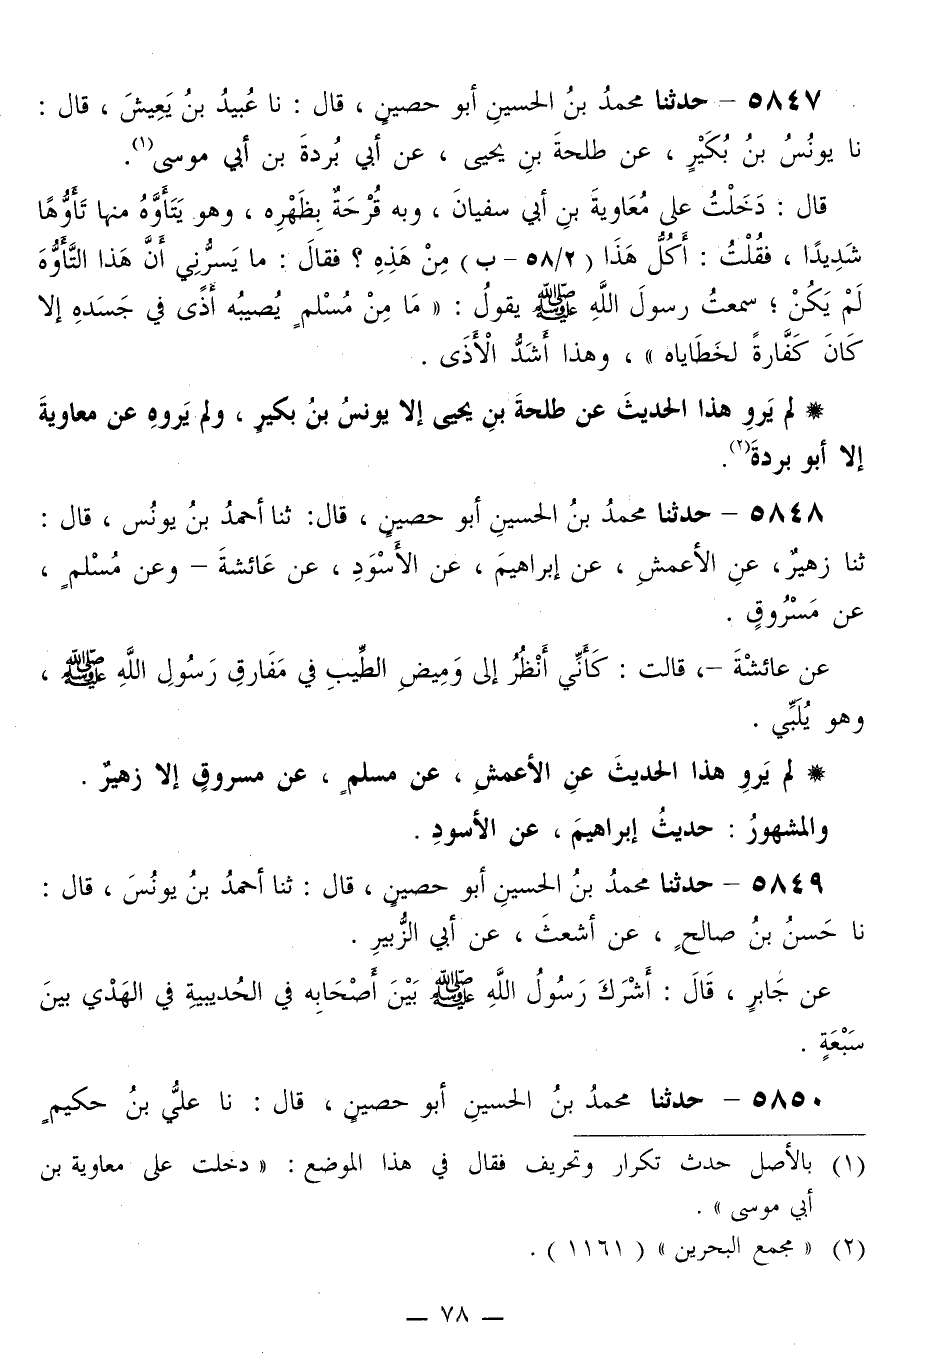 ٥٨٤٧ – حدثنا محمدُ بنُ الحسينِ أبو حصينٍ ، قال : نا عُبيدُ بنُ يَعِيشَ ، قال :
نا يونُسُ بنُ بُكَيْرٍ ، عن طلحةَ بنِ يحيى ، عن أبي بُردةَ بن أبي موسى(١).
قال : دَخَلْتُ على مُعَاويةَ بنِ أبي سفيانَ ، وبه قُرْحَةٌ بِظَهْرِه ، وهو يَتَأَوَّهُ منها تَأَوُّهًا
شَدِيدًا ، فقُلْتُ : أَكُلُّ هَذَا ( ٥٨/٢ – ب ) مِنْ هَذِهِ ؟ فقالَ : ما يَسرُّنِي أَنَّ هَذا التَّأَوُّهَ
لَمْ يَكُنْ ؛ سمعتُ رسولَ اللَّهِ ﷺ يقولُ : « مَا مِنْ مُسْلمٍ يُصيبُه أَذًى في جَسَدِه إلا
كَانَ كَفَّارةً لخَطَاياه » ، وهذا أَشَدُّ الْأَذَى .
* لم يَروِ هذا الحديثَ عن طلحةَ بنِ يحيى إلا يونسُ بنُ بكيرٍ ، ولم يَروِهِ عن معاويةَ
إلا أبو بردةَ(٢).
٥٨٤٨ – حدثنا محمدُ بنُ الحسينِ أبو حصينٍ ، قال: ثنا أحمدُ بنُ يونُس ، قال :
ثنا زهيرٌ، عنِ الأعمشِ ، عن إبراهيمَ ، عن الأَسْوَدِ ، عن عَائشةَ – وعن مُسْلمٍ ،
عن مَسْرُوقٍ .
عن عائشْةَ –، قالت : كَأَنِّي أَنْظُرُ إلى وَمِيضِ الطِّيبِ في مَفَارقِ رَسُولِ اللَّهِ ﷺ ،
وهو يُلَبِّي .
* لم يَروِ هذا الحديثَ عنِ الأعمشِ ، عن مسلمٍ ، عن مسروقٍ إلا زهيرٌ .
والمشهورُ : حديثُ إبراهيمَ ، عن الأسودِ .
٥٨٤٩ – حدثنا محمدُ بنُ الحسينِ أبو حصينٍ ، قال : ثنا أحمدُ بنُ يونُسَ ، قال :
نا حَسنُ بنُ صالحٍ ، عن أشعثَ ، عن أبي الزُّبيرِ .
عن جَابرٍ ، قَالَ : أَشْرَكَ رَسُولُ اللَّهِ ﷺ بَيْنَ أَصْحَابِه في الحُديبيةِ في الهَدْي بينَ
سَبْعَةٍ .
٥٨٥٠ – حدثنا محمدُ بنُ الحسينِ أبو حصينٍ ، قال : نا عليُّ بنُ حكيمٍ
(١) بالأصل حدث تكرار وتحريف فقال في هذا الموضع : « دخلت على معاوية بن
أبي موسى » .
(٢) « مجمع البحرين » ( ١١٦١ ) .
— ٧٨ —